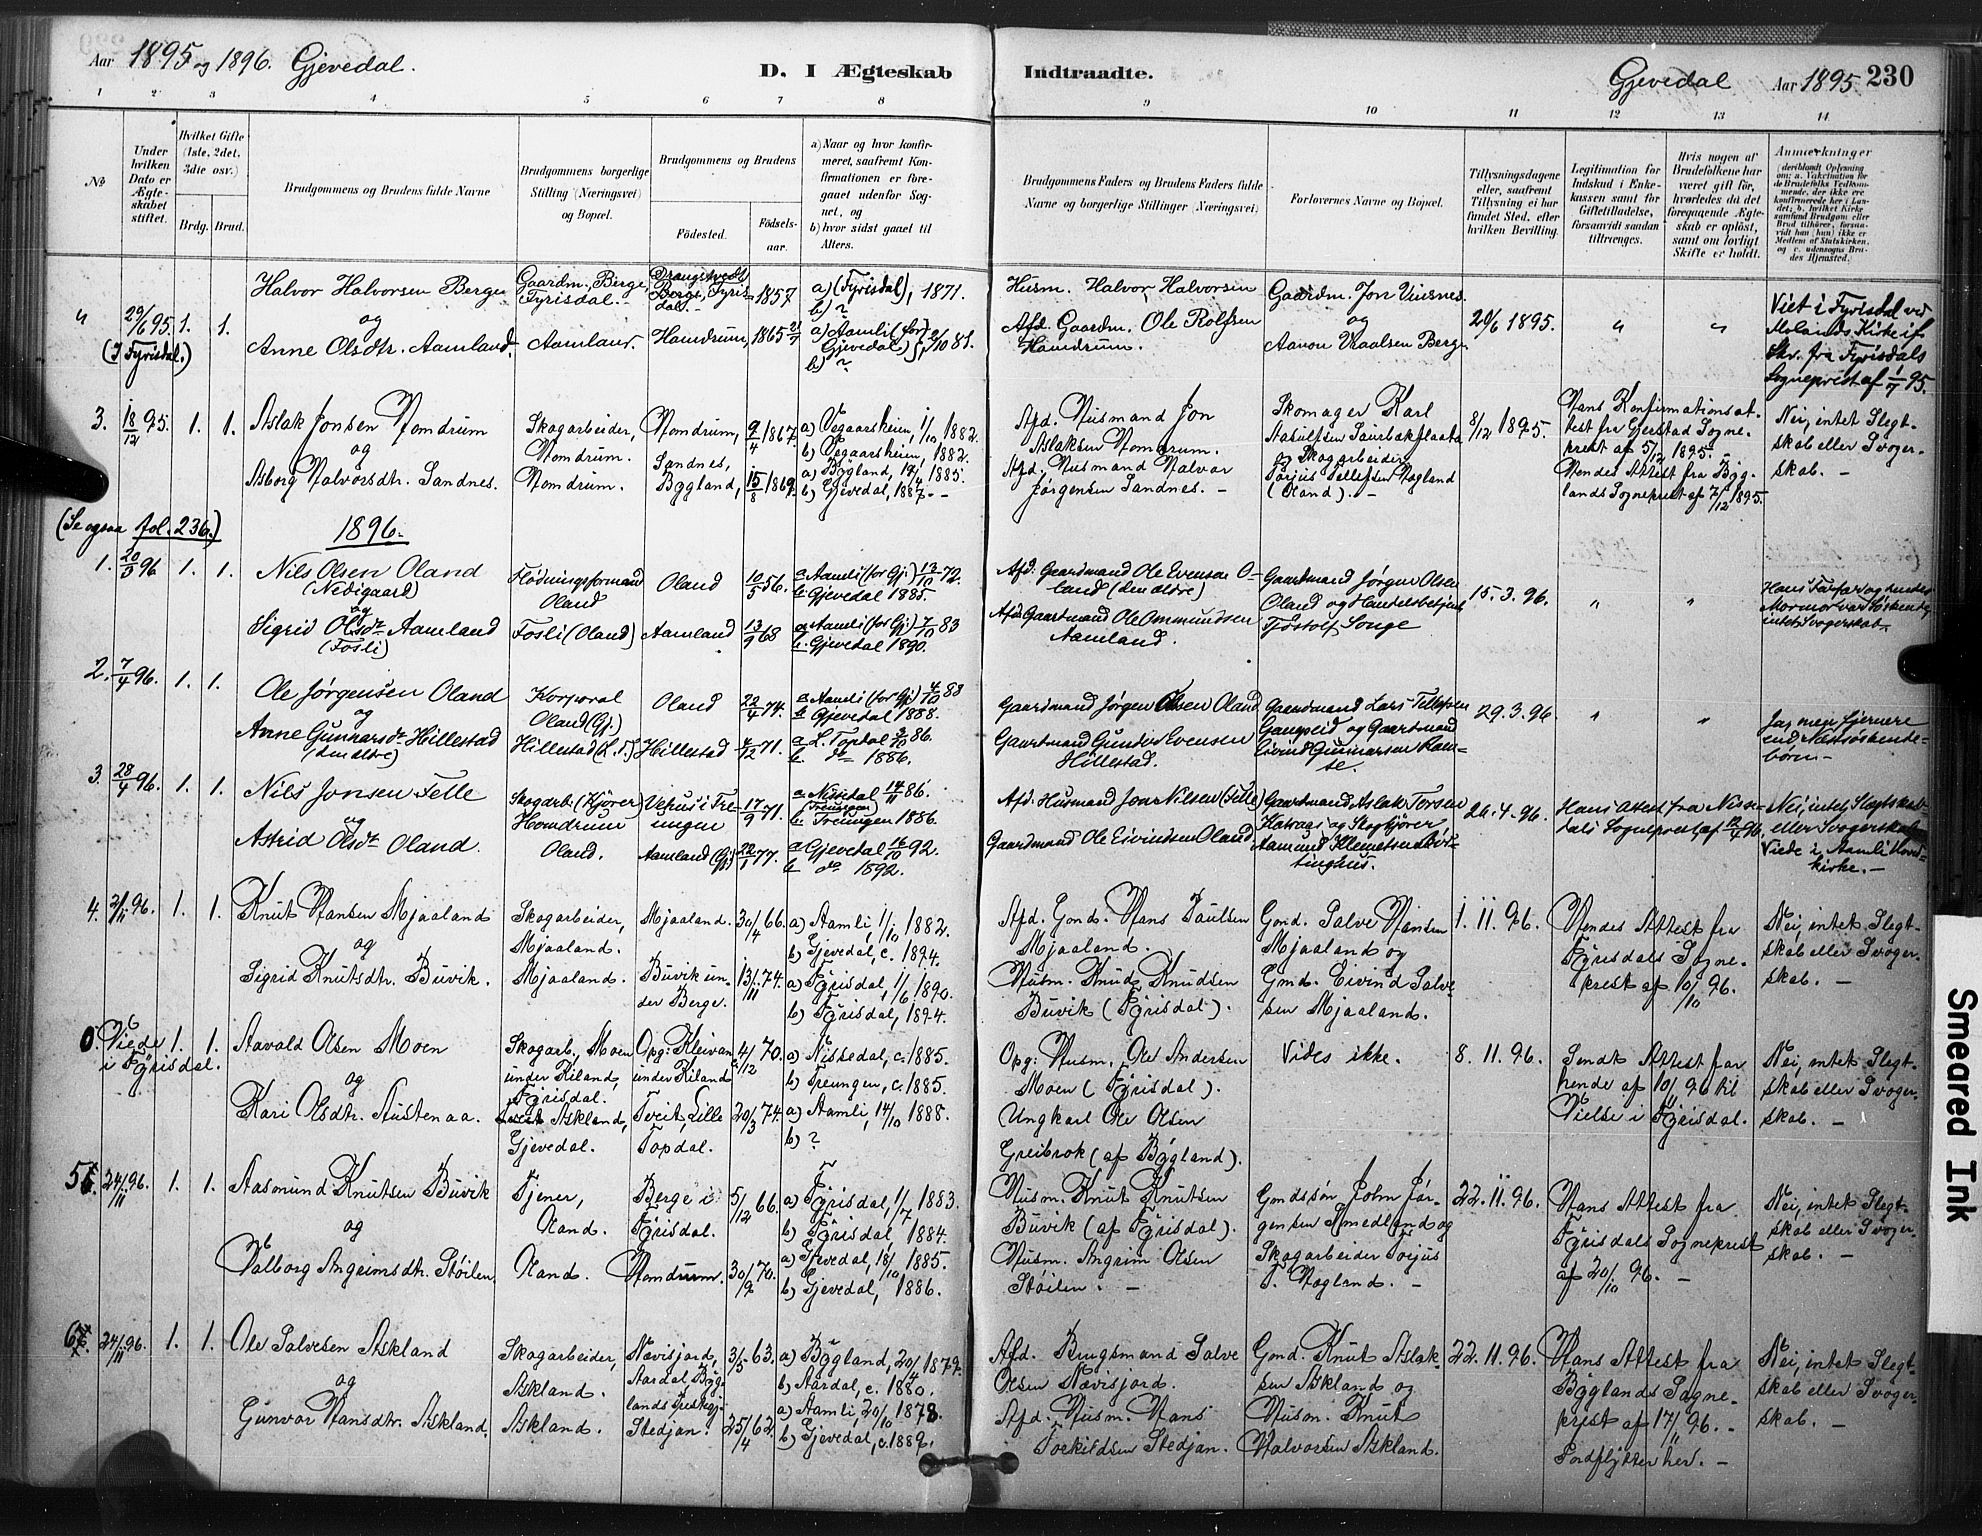 Aar 1895 og 1896. Gjevedal.
D. I Ægteskab
Indtraadte.
Gjevedal Aar 1895. 230
1 2 3 4 5 6 7 8 9 10 11 12 13 14
No
Under hvilken Dato er Ægteskabet stiftet.
Hvilket Gifte (1ste, 2det, 3dte osv.)
Brdg. Brud.
Brudgommens og Brudens fulde Navne
Brudgommens borgerlige Stilling (Næringsvei) og Bopæl.
Brudgommens og Brudens
Födested. Födselsaar.
a) Naar og hvor konfirmeret, saafremt Konfirmationen er foregaaet udenfor Sognet, og
b) hvor sidst gaaet til Alters.
Brudgommens Faders og Brudens Faders fulde Navne og borgerlige Stillinger (Næringsvei)
Forlovernes Navne og Bopæl.
Tillysningsdagene eller, saafremt Tillysning ei har fundet Sted, efter hvilken Bevilling.
Legitimation for Indskud i Enkekassen samt for Giftetilladelse, forsaavidt saadan tiltrænges.
Hvis nogen af Brudefolkene har været gift för, hvorledes da det foregaaende Ægteskab er oplöst, samt om lovligt Skifte er holdt.
Anmærkninger
4 29/6 95. 1. 1.
(I Fyrisdal.)
Halvor Halvorsen Berge
og
Anne Olsdtr. Aamland.
Gaardm. Berge, Fyrisdal.
Aamland.
Drangstvedt Berge, Fyrisdal. 1857
Hamdrum, 1865 21/7
a) (Fyrisdal), 1871.
b) ?
a) Aamli (for Gjevedal), 2/10 81.
b) ?
Husm. Halvor Halvorsen
Afd. Gaardm. Ole Rolfsen
Hamdrum.
Gaardm. Jon Vinsnes
og
Aanon Vraalsen Berge
20/6 1895. " "
Viet i Fyrisdal ved
Molands Kirke if.
Skr. fra Fyrisdals
Sogneprest af 1/7 95.
3. 18/12 95. 1. 1.
Aslak Jonsen Homdrum
og
Asborg Halvorsdtr. Sandnes.
Skogarbeider,
Homdrum.
Homdrum.
Homdrum, 9/4 1867.
Sandnes,
Bygland, 15/8 1869.
a) Vegaarsheien 1/10 1882.
b) Vegaarsheien, 1882.
a) Bygland, 14/4 1885.
b) Gjevedal, 1887. -
Afd. Husmand Jon
Aslaksen Homdrum.
Afd. Husmand Halvor
Jørgensen Sandnes. -
Skomager Karl
Aasulfsen Saurbækflaata
og Skogarbeider
Torjus Tellefsen Hogland
(Oland). -
8/12 1895.
Hans Konfirmationsattest
fra Gjerstad Sogneprest
af 5/12 1895. -
Hendes Attest fra Byglands
Sogneprest af 7/12 1895.
Nei, intet Slegtskab
eller Svogerskab. -
(Se ogsaa fol. 236.)
1896.
1. 20/3 96 1. 1.
Nils Olsen Oland
(Nedigaard)
og
Sigrid Olsdtr Aamland
(Fosli)
Flödningsformand
Oland
Fosli (Oland)
Oland 10/5 56.
Aamland 13/9 68
a. Aamli (for Gj.) 13/10 72.
b. Gjevedal 1885.
a. Aamli (for Gj.) 7/10 83
b. Gjevedal 1890.
Afd: Gaardmand Ole Evensen Oland
(den ældre)
Afd: Gaartmand Ole Ommundsen
Aamland.
Gaardmand Jörgen Olsen
Oland og Handelsbetjent
Tjöstolf Songe
15-3.96. " "
Hans Farfar og hendes
Mormor var Söskende,
intet Svogerskab.
2. 7/4 96. 1. 1.
Ole Jørgensen Oland
og
Anne Gunnarsdtr Hillestad
(den ældre)
Korporal
Oland (Gj.)
Hillestad (L. T.)
Oland 22/4 74.
Hillestad 4/12 71.
a. Aamli (for Gj) 4/10 88
b. Gjevedal 1888.
a. L. Topdal 3/10 86.
b. do 1886.
Gaardmand Jørgen Olsen Oland
Gaartmand Gunder Evensen
Hillestad.
Gaardmand Lars Tellefsen
Gangseid og Gaartmand
Eivind Gunnarsen Ramse.
29.3.96. " "
Jag men fjernere
end Næstsöskendebörn-
3. 28/4 96. 1. 1.
Nils Jonsen Felle
og
Astrid Olsdtr Oland.
Skogarb. (Kjörer)
Homdrum
Oland.
Vehus i Treungen 17/9 71.
Aamland (Gj) 77.
a. Nissedal 14/11 86.
(Treungen)
b. Treungen 1886.
a. Gjevedal 16/10 92.
b do 1892.
Afd: Husmand Jon Nilsen (Felle)
Gaardmand Ole Eivindsen Oland
Gaartmand Aslak Torsen
Katraas og Skogkjörer
Aamund Klemetsen
26-4-96.
Hans Attest fra Nissedals
Sogneprest af 12/4 96
Nei, intet Slegtskab
eller Svogerskab
Viede i Aamli Hovedkirke. -
4. 21/11 96. 1. 1.
Knut Hansen Mjaaland
og
Sigrid Knutsdtr. Buvik.
Skogarbeider,
Mjaaland.
Mjaaland.
Mjaaland. 30/4 66.
Buvik under Berge. 13/11 74.
a) Aamli, 1/10 1882.
b) Gjevedal, c. 1894.
a) Fyrisdal, 1/6 1890.
b) Fyrisdal, 1894.
Afd. Gmd. Hans Paulsen
Mjaaland.
Husm. Knud Knudsen
Buvik (Fyrisdal).
Gmd. Salve Hansen
Mjaaland og
Gmd. Eivind Salvesen
Mjaaland.
1. 11. 96.
Hendes Attest fra
Fyrisdals Sogneprest
af 10/10 96.
Nei, intet Slegtskab
eller Svogerskab. -
0. Viede 1. 1.
i Fyrisdal.
Aavald Olsen Moen
og
Kari Olsdtr. Austenaa.
Skogarb., Moen
under Kiland,
Fyrisdal.
Askland,
Gjevedal.
Opg: Kleivan
under Kiland 4/12 70.
Tveit, Lille
Topdal. 20/3 74.
a) Nissedal, c. 1885.
b) Treungen, c. 1885.
a) Aamli, 14/10 1888.
b) ?
Opg: Husm. Ole Andersen
Moen (Fyrisdal).
Ungkarl Ole Olsen
Greibrok (af Bygland).
Vides ikke.
8. 11. 96.
Sendt Attest for
hende af 10/11 96 til
Vielse i Fyrisdal.
Nei, intet Slegtskab
eller Svogerskab. -
5. 24/11 96. 1. 1.
Aasmund Knutsen Buvik
og
Valborg Angrimsdtr. Støilen
Tjener,
Oland.
Oland.
Berge i
Fyrisdal. 5/12 66.
Homdrum. 30/9 70.
a) Fyrisdal, 1/7 1883.
b) Fyrisdal, 1884.
a) Gjevedal, 18/10 1885.
b) Gjevedal, 1886.
Husm. Knut Knutsen
Buvik (af Fyrisdal).
Husm. Angrim Olsen
Støilen. -
Gmdssøn John Jørgensen
Smedland og
Skogarbeider Torjus
T. Hogland. -
22. 11. 96.
Hans Attest fra
Fyrisdals Sogneprest
af 20/10 96. -
Nei, intet Slegtskab
eller Svogerskab. -
6. 24/11 96. 1. 1.
Ole Salvesen Askland
og
Gunvor Hansdtr. Askland.
Skogarbeider,
Askland.
Askland.
Nævisjord,
Aardal, Byglands
Prestegj. 3/5 63.
Stedjan. 25/4 62.
a) Bygland, 20/4 1879.
b) Aardal, c. 1880.
a) Aamli 20/10 1878.
b) Gjevedal, c. 1889.
Afd. Brugsmand Salve
Olsen Nævisjord.
Afd. Husm. Hans
Torkildsen Stedjan.
Gmd. Knut Aslaksen
Askland og
Husm. Knut
Halvorsen Askland.
22. 11. 96.
Hans Attest fra
Byglands Sogneprest
af 17/11 96. -
Indflytter her. -
Nei, intet Slegtskab
eller Svogerskab. -
Smeared Ink